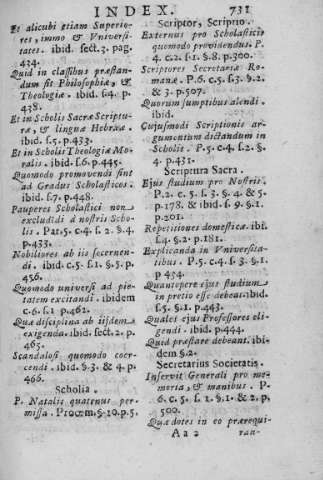 INDEX. 731
Et alicubi etiam Superio-
res, immo & Vniversi-
tates. ibid. sect.3. pag.
424.
Quid in classibus præstan-
dum sit Philosophiæ, &
Theologiæ. ibid. s.4. p.
438.
Et in Scholis Sacræ Scriptu-
ræ, & linguæ Hebrææ.
ibid. s.5. p.433.
Et in Scholis Theologiæ Mo-
ralis. ibid. s.6. p.445.
Quomodo promovendi sint
ad Gradus Scholasticos.
ibid. s.7. p.448.
Pauperes Scholastici non
excludidi à nostris Scho-
lis. Par.5. c.4. s.2. §.4.
p.433.
Nobiliores ab iis secernen-
di. ibid. c.5. s.1. §.5. p.
456.
Quomodo universi ad pie-
tatem excitandi. ibidem
c.6. s.1 p.462.
Quæ disciplina ab iisdem
exigenda. ibid. sect.2. p.
465.
Scandalosi quomodo coer-
cendi. ibid. §.3. & 4. p.
466.
Scholia.
P. Natalis quatenus per-
missa. Proœm. §.10. p.5.
Scriptor, Scriptio.
Externus pro Scholasticis
quomodo providendus. P.
4. c.2. s.1. §.8. p.300.
Scriptores Secretariæ Ro-
manæ. P.6. c.5. s.3. §.2.
& 3. p.507.
Quorum sumptibus alendi.
ibid.
Cujusmodi Scriptionis ar-
gumentum dictandum in
Scholis. P.5. c.4. s.2. §.
4. p.431.
Scriptura Sacra.
Ejus studium pro Nostris. P.
2. c.5. s.3. §.4. & 5.
p.178. & ibid. s.9. §.1.
p.201.
Repetitiones domesticæ. ibi.
s.4. §.2. p.181.
Explicanda in Vniversita-
tibus. P.5. c.4. s.3. §.1.
p 454.
Quantopere ejus studium
in pretio esse debeat. ibid.
s.5. §.1. p.443.
Quales ejus Professores eli-
gendi. ibid. p.444.
Quid præstare debeant. ibi-
dem §.2.
Secretarius Societatis.
Inservit Generali pro me-
moria, & manibus. P.
6. c.5. s.1. §.1. & 2. p.
500.
Quæ dotes in eo prærequi-
Aaa ran-